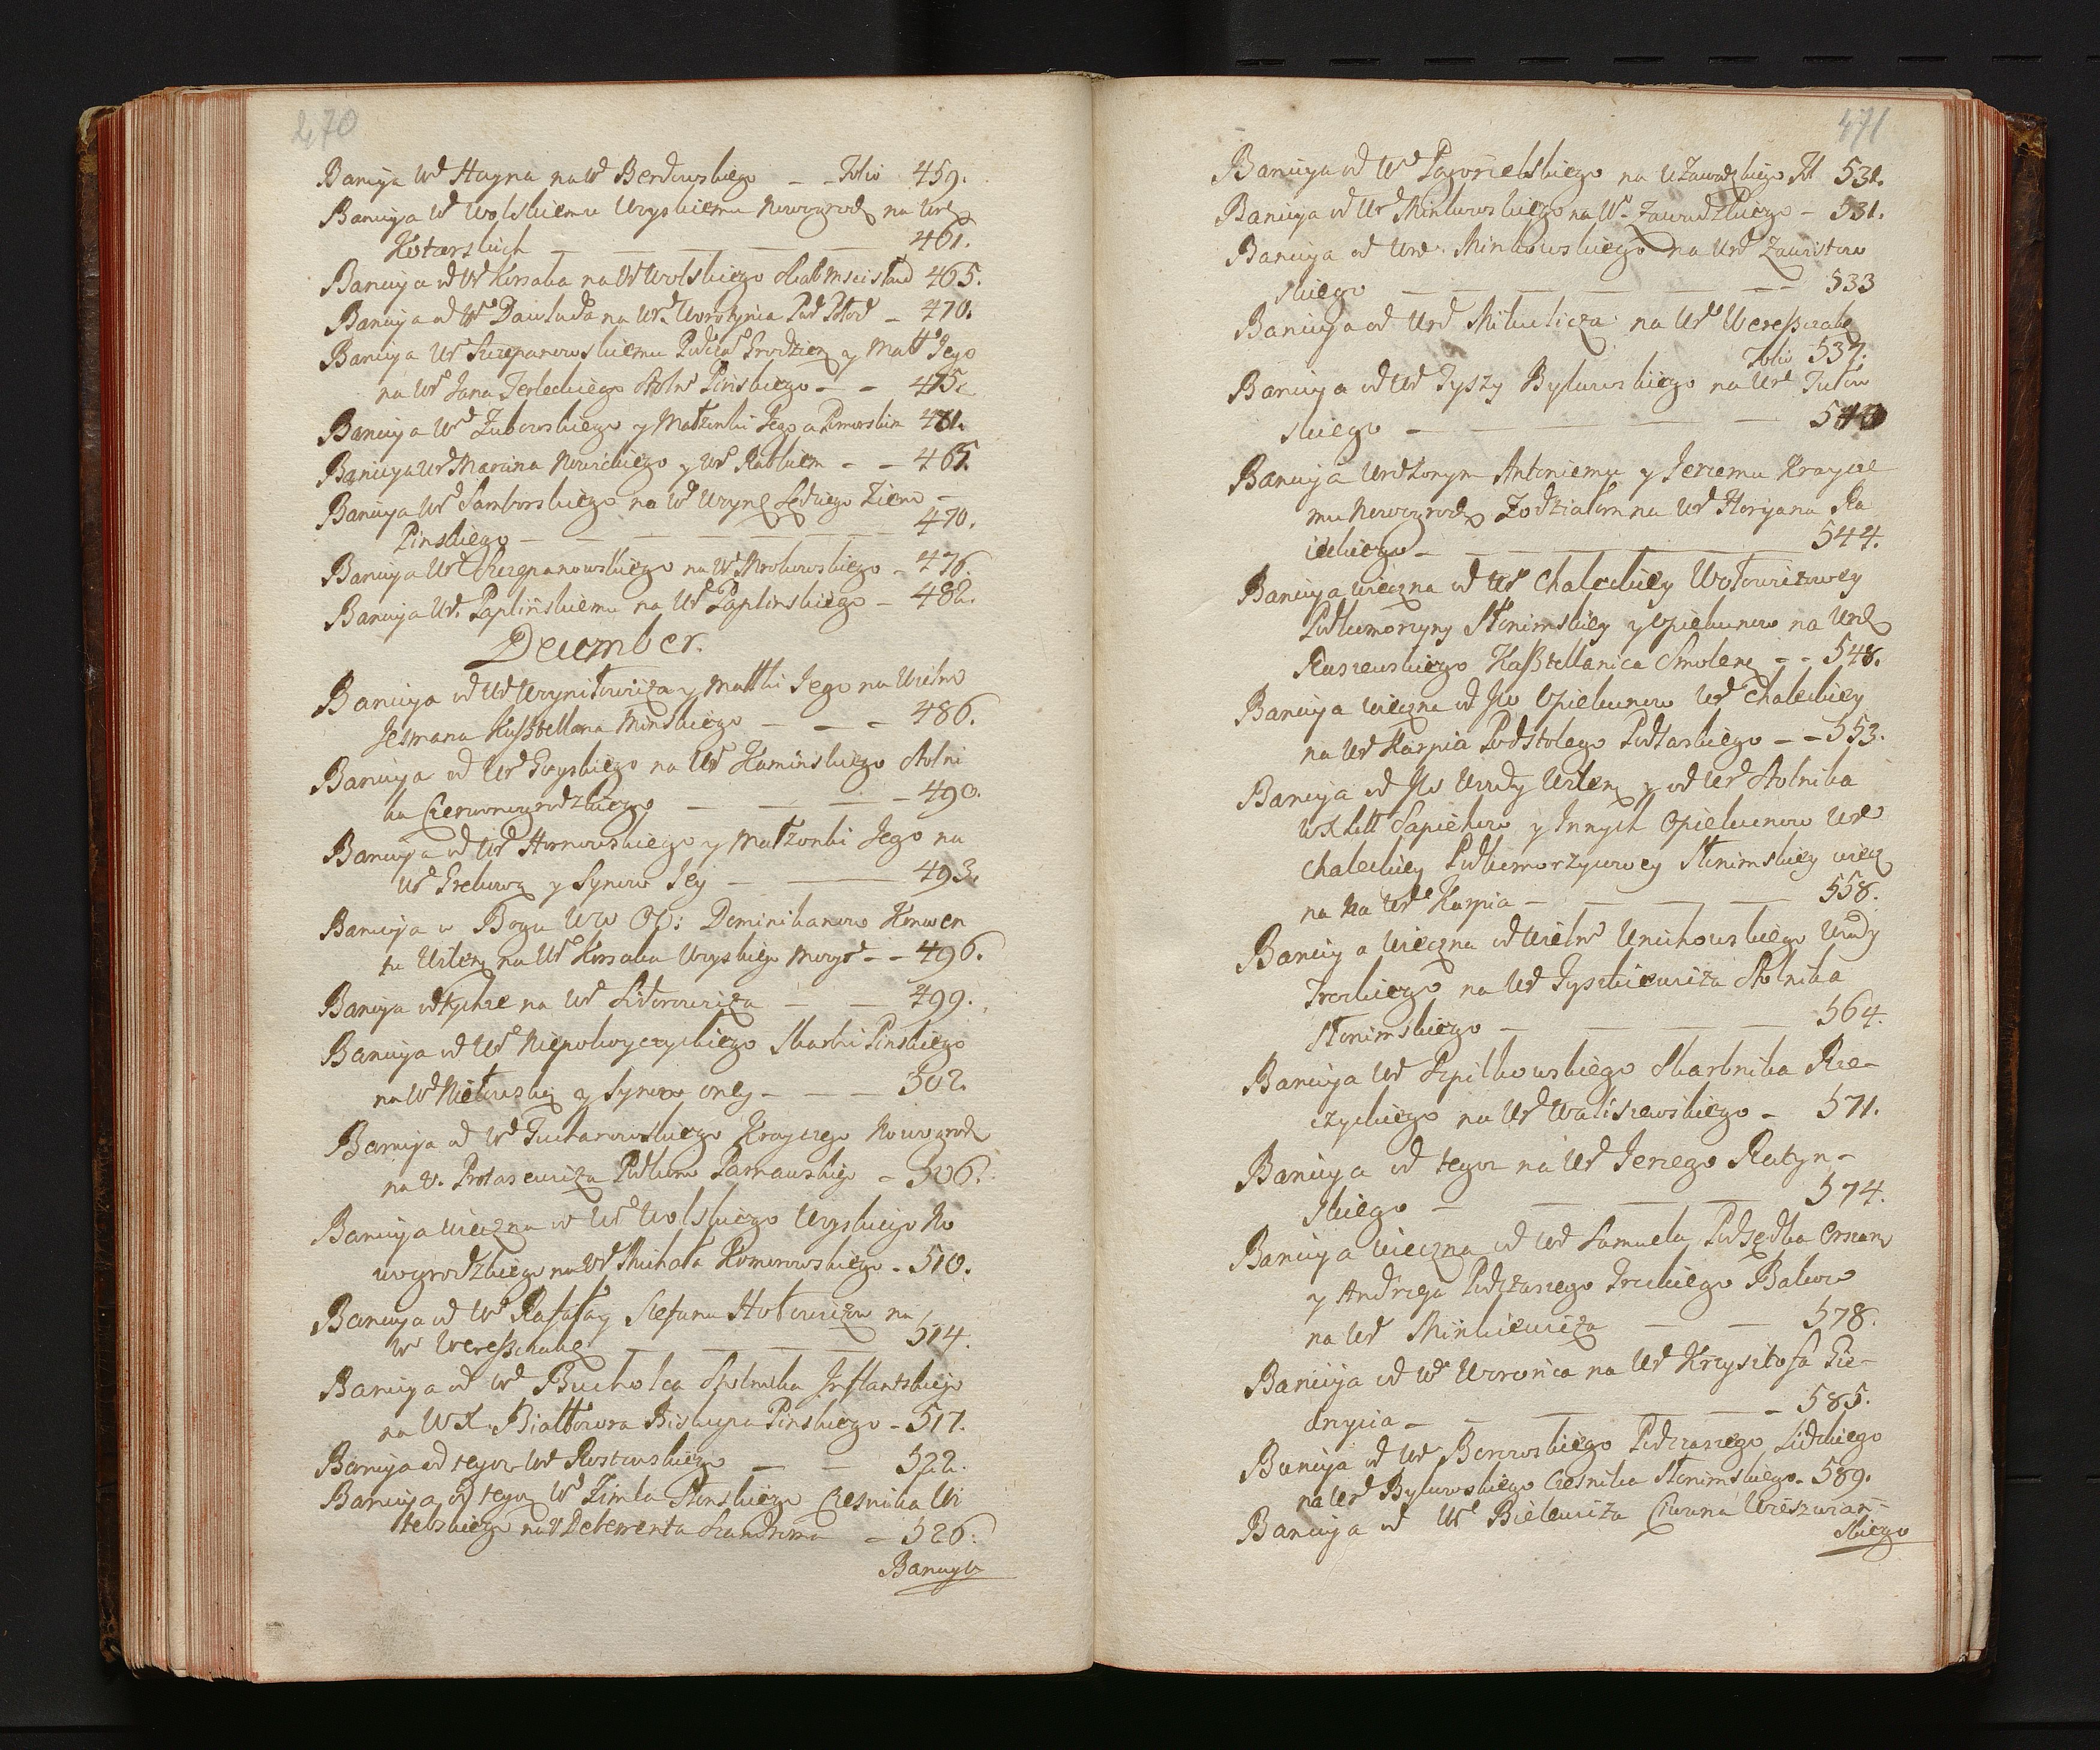 270
Banicya Wd Hayna na Wd Berdowskiego – – Folio 459.
Banicya Wd Wolskiemu Woyskiemu Nowogrodz na Urd
Kotarskich – – – – – 461.
Banicya od Wd Korsaka na Wd Wolskiego Skarb Mscisław 465.
Banicya od Wd Dawluda na Wd Worotynca Pod Płod – 470.
Banicya Wd Szczepanowskiemu Podczas Grodzien y Małł Jego
na Wd Jana Terleckiego Stoln Pińskiego – – 475.
Banicya Wd Zubowskiego y Małżonki Jego a Pomorskim 481.
Banicya Wd Marcina Nowickiego y Wd Rablicm – – 465.
Banicya Wd Samborskiego na Wd Woynę Sędziego Ziem –
Pinskiego – – – – – 470.
Banicya Wd Szczepanowskiego na Wd Mrokowskiego – 476.
Banicya Wd Paplińskiemu na Wd Paplinskiego – 482.
December.
Banicya od Wd Woyniłowicza y Małłki Jego na Wielm
Jesmana Kasztellana Minskiego – – – 486.
Banicya od Wd Goyskiego na Wd Kaminskiego Stolni
ka Czerwonogrodzkiego – – – – 490.
Banicya od Wd Hornowskiego y Małżonki Jego na
Wd Grekową y Synow Jey – – 493.
Banicya w Bogu WW OO: Dominikanow Konwen
tu Wilen na Wd Korsaka Woyskiego Mozyr – – 496.
Banicya od tychze na Wd Sidorowicza – – 499.
Banicya od Wd Niepokoyczyckiego Skarbn Pinskiego
na Wd Niełowską y Synow oney – – – 502.
Banicya od Wd Puchanowskiego Krayczego Nowogrodz
na W. Protasewicza Podkom Parnawskiego – 506.
Banicya wieczna od Wd Wolskiego Woyskiego No
wogrodzkiego na Wd Michała Komorowskiego – 510.
Banicya od Wd Rafała y Stefana Hołowiczow na
W Wereszczakę – – – 514.
Banicya od Wd Bucholca Stolnika Inflantskiego
na WX Białłozora Biskupa Pinskiego – 517.
Banicya od tegoz Wd Rostowskiego – – 522.
Banicya od tegoz Wd Zimla Płonskiego Czesnika Wi
tebskiego na W Deterrenta Szandroma – 526.
Banicya
471
Banicya od Wd Pogorzelskiego na W Zawadzkiego Fol 531.
Banicya od Wd Minkowskiego na Wd Zawadzkiego – 531.
Banicya od Urd Minkowskiego na Urd Zawistow
skiego – – – – 533
Banicya od Urd Mikulicza na Urd Wereszczakę
Folio 537.
Banicya od Wd Tyszy Bykowskiego na Urd Tukow
skiego – – – – 540
Banicya Urodzonym Antoniemu y Jerzemu Kraycze
mu Nowogrodz Zodziałom na Wd Floryana Ra
ieckiego – – – 544.
Banicya wieczna od Wd Chaleckiey Wołowiczowey
Podkomorzyny Słonimskiey y opiekunow na Urd
Ruszewskiego Kasztellanica Smolen – – 548.
Banicya wieczna od Jw Opiekunow Wd Chaleckiey
na Wd Karpia Podstolego Podlaskiego – – 553.
Banicya od Jw Wody Wilen y od Wd Stolnika
WXLitt Sapiehow y Innych Opiekunow Urd
Chaleckiey Podkomorzynowey Słonimskiey wiecz
na na Wd Karpia – – – – 558.
Banicya wieczna od Wielm Unichowskiego Wody
Trockiego na Wd Tyszkiewicza Stolnika
Słonimskiego – – – 564.
Banicya Wd Szpilkowskiego Skarbnika Rze–
czyckiego na Wd Waliszewskiego – 571.
Banicya od tegoz na Wd Jerzego Ratyn–
skiego – – – 574.
Banicya wieczna od Wd Samuela Podsędka Orszan
y Andrzeja Podczaszego Trockiego Bakow
na Wd Minkiewicza – – 578.
Banicya od Wd Woronca na Wd Krzysztofa Gie–
drycia – – – – 585.
Banicya od Wd Borowskiego Podczaszego Lidzkiego
na Wd Bykowskiego Czesnika Słonimskiego. 589.
Banicya od Wd Bielewicza Ciwuna Wieszwian–
skiego